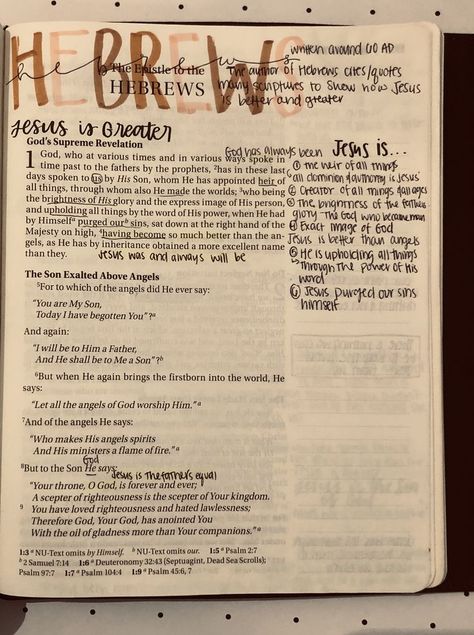 HEBREWS
hebrews
The Epistle to the
HEBREWS
written around 60 AD
The author of Hebrews cites/quotes
many scriptures to show how Jesus
is better and greater
Jesus is Greater
God's Supreme Revelation
1 God, who at various times and in various ways spoke in
time past to the fathers by the prophets, ²has in these last
days spoken to us by His Son, whom He has appointed heir of
all things, through whom also He made the worlds; ³who being
the brightness of His glory and the express image of His person,
and upholding all things by the word of His power, when He had
by Himselfᵃ purged ourᵇ sins, sat down at the right hand of the
Majesty on high, ⁴having become so much better than the an-
gels, as He has by inheritance obtained a more excellent name
than they.
Jesus was and always will be
God has always been
Jesus is...
① the heir of all things
all dominion & authority is Jesus
② Creator of all things & ages
③ The brightness of the fathers
glory. The God who became man
④ Exact image of God
Jesus is better than angels
⑤ He is upholding all things
through the power of His
word
⑥ Jesus purged our sins
himself
The Son Exalted Above Angels
⁵For to which of the angels did He ever say:
"You are My Son,
Today I have begotten You"?ᵃ
And again:
"I will be to Him a Father,
And He shall be to Me a Son"?ᵇ
⁶But when He again brings the firstborn into the world, He
says:
"Let all the angels of God worship Him."ᵃ
⁷And of the angels He says:
"Who makes His angels spirits
And His ministers a flame of fire."ᵃ
God
⁸But to the Son He says:
Jesus is the fathers equal
"Your throne, O God, is forever and ever;
A scepter of righteousness is the scepter of Your kingdom.
9 You have loved righteousness and hated lawlessness;
Therefore God, Your God, has anointed You
With the oil of gladness more than Your companions."ᵃ
1:3 ᵃ NU-Text omits by Himself. ᵇ NU-Text omits our. 1:5 ᵃ Psalm 2:7
ᵇ 2 Samuel 7:14 1:6 ᵃ Deuteronomy 32:43 (Septuagint, Dead Sea Scrolls);
Psalm 97:7 1:7 ᵃ Psalm 104:4 1:9 ᵃ Psalm 45:6, 7